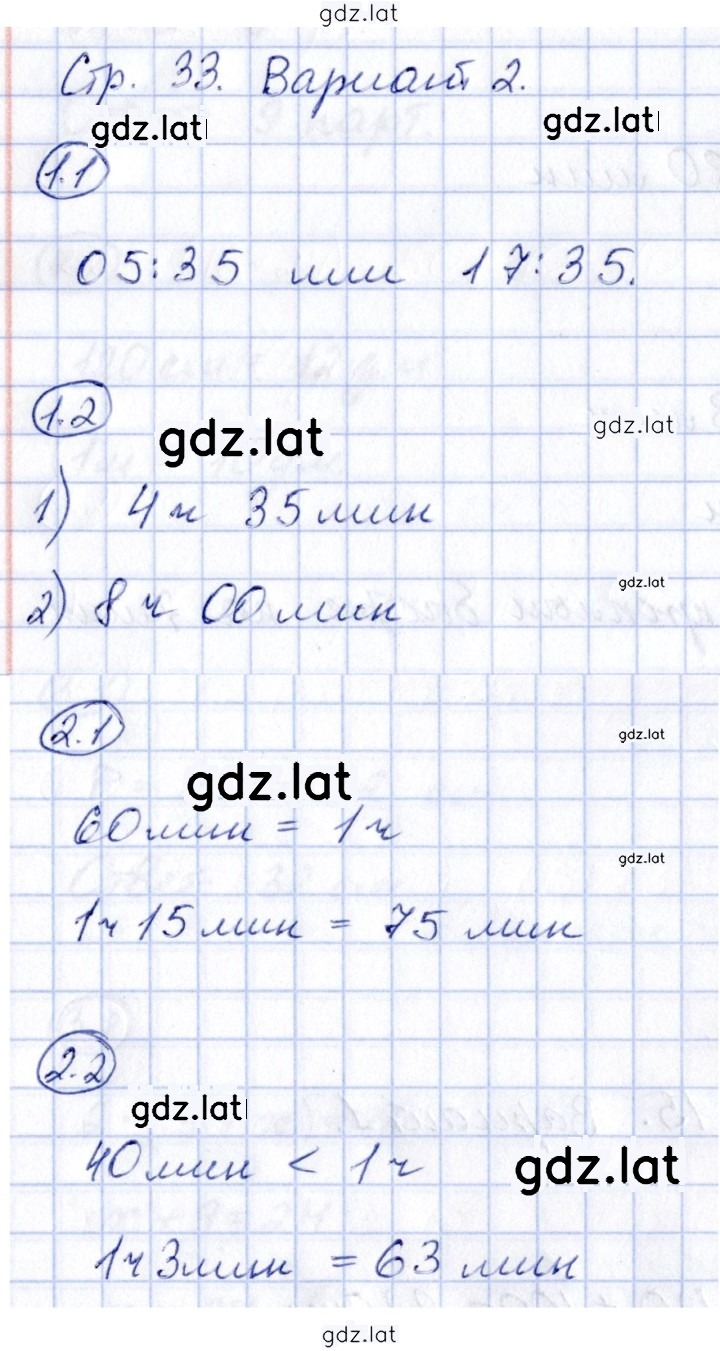 gdz.lat
Стр. 33. Вариант 2.
gdz.lat gdz.lat
1.1
05:35 или 17:35.
1.2
gdz.lat gdz.lat
1) 4 ч 35 мин
gdz.lat
2) 8 ч 00 мин
2.1
gdz.lat
gdz.lat
60 мин = 1 ч
gdz.lat
1 ч 15 мин = 75 мин
2.2
gdz.lat
40 мин < 1 ч gdz.lat
1 ч 3 мин = 63 мин
gdz.lat